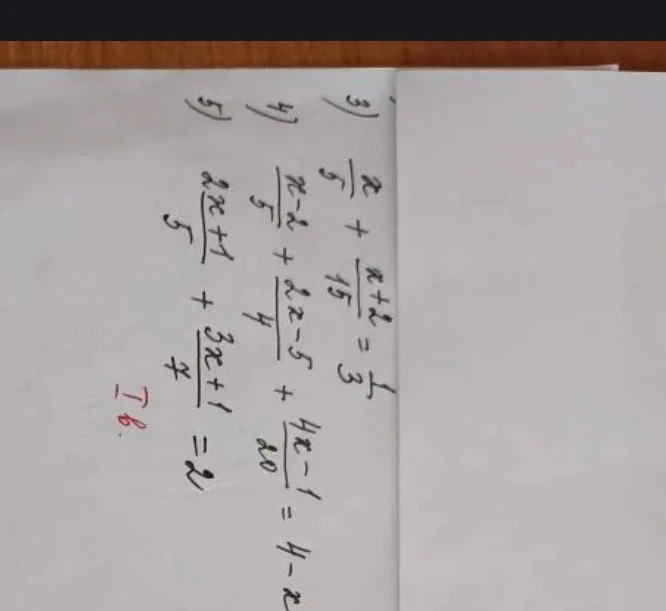 3) x/5 + x+2/15 = 1/3
4) x-2/5 + 2x-5/4 + 4x-1/20 = 4-x
5) 2x+1/5 + 3x+1/7 = 2
I в.